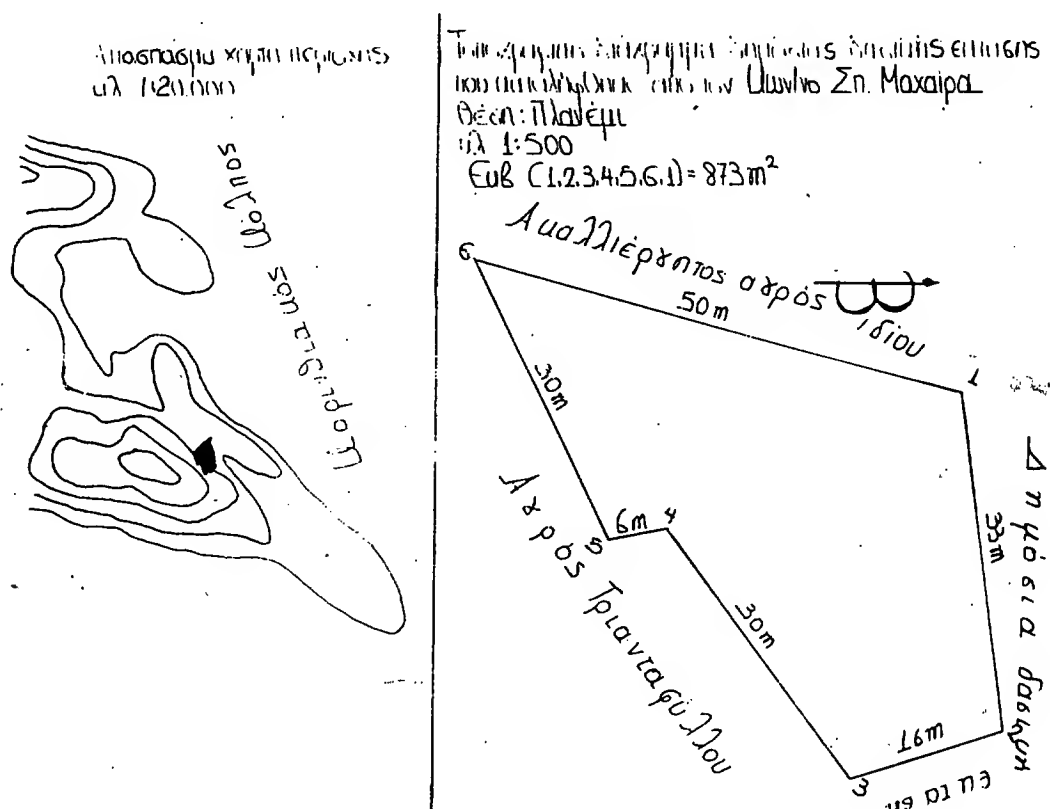 Απόσπασμα χάρτη περιοχής
κλ 1:20.000
Κορινθιακός Κόλπος
Τοπογραφικό διάγραμμα δημόσιας δασικής έκτασης
που καταλήφθηκε από τον Κων/νο Σπ. Μαχαίρα
Θέση: Πλανέμι
κλ 1:500
Εμβ (1.2.3.4.5.6.1) = 873m²
Ακαλλιέργητος αγρός ιδίου
6
50m
1
30m
33m
Δημόσια δασική
5
6m
4
Αγρός Τριανταφύλλου
30m
16m
3